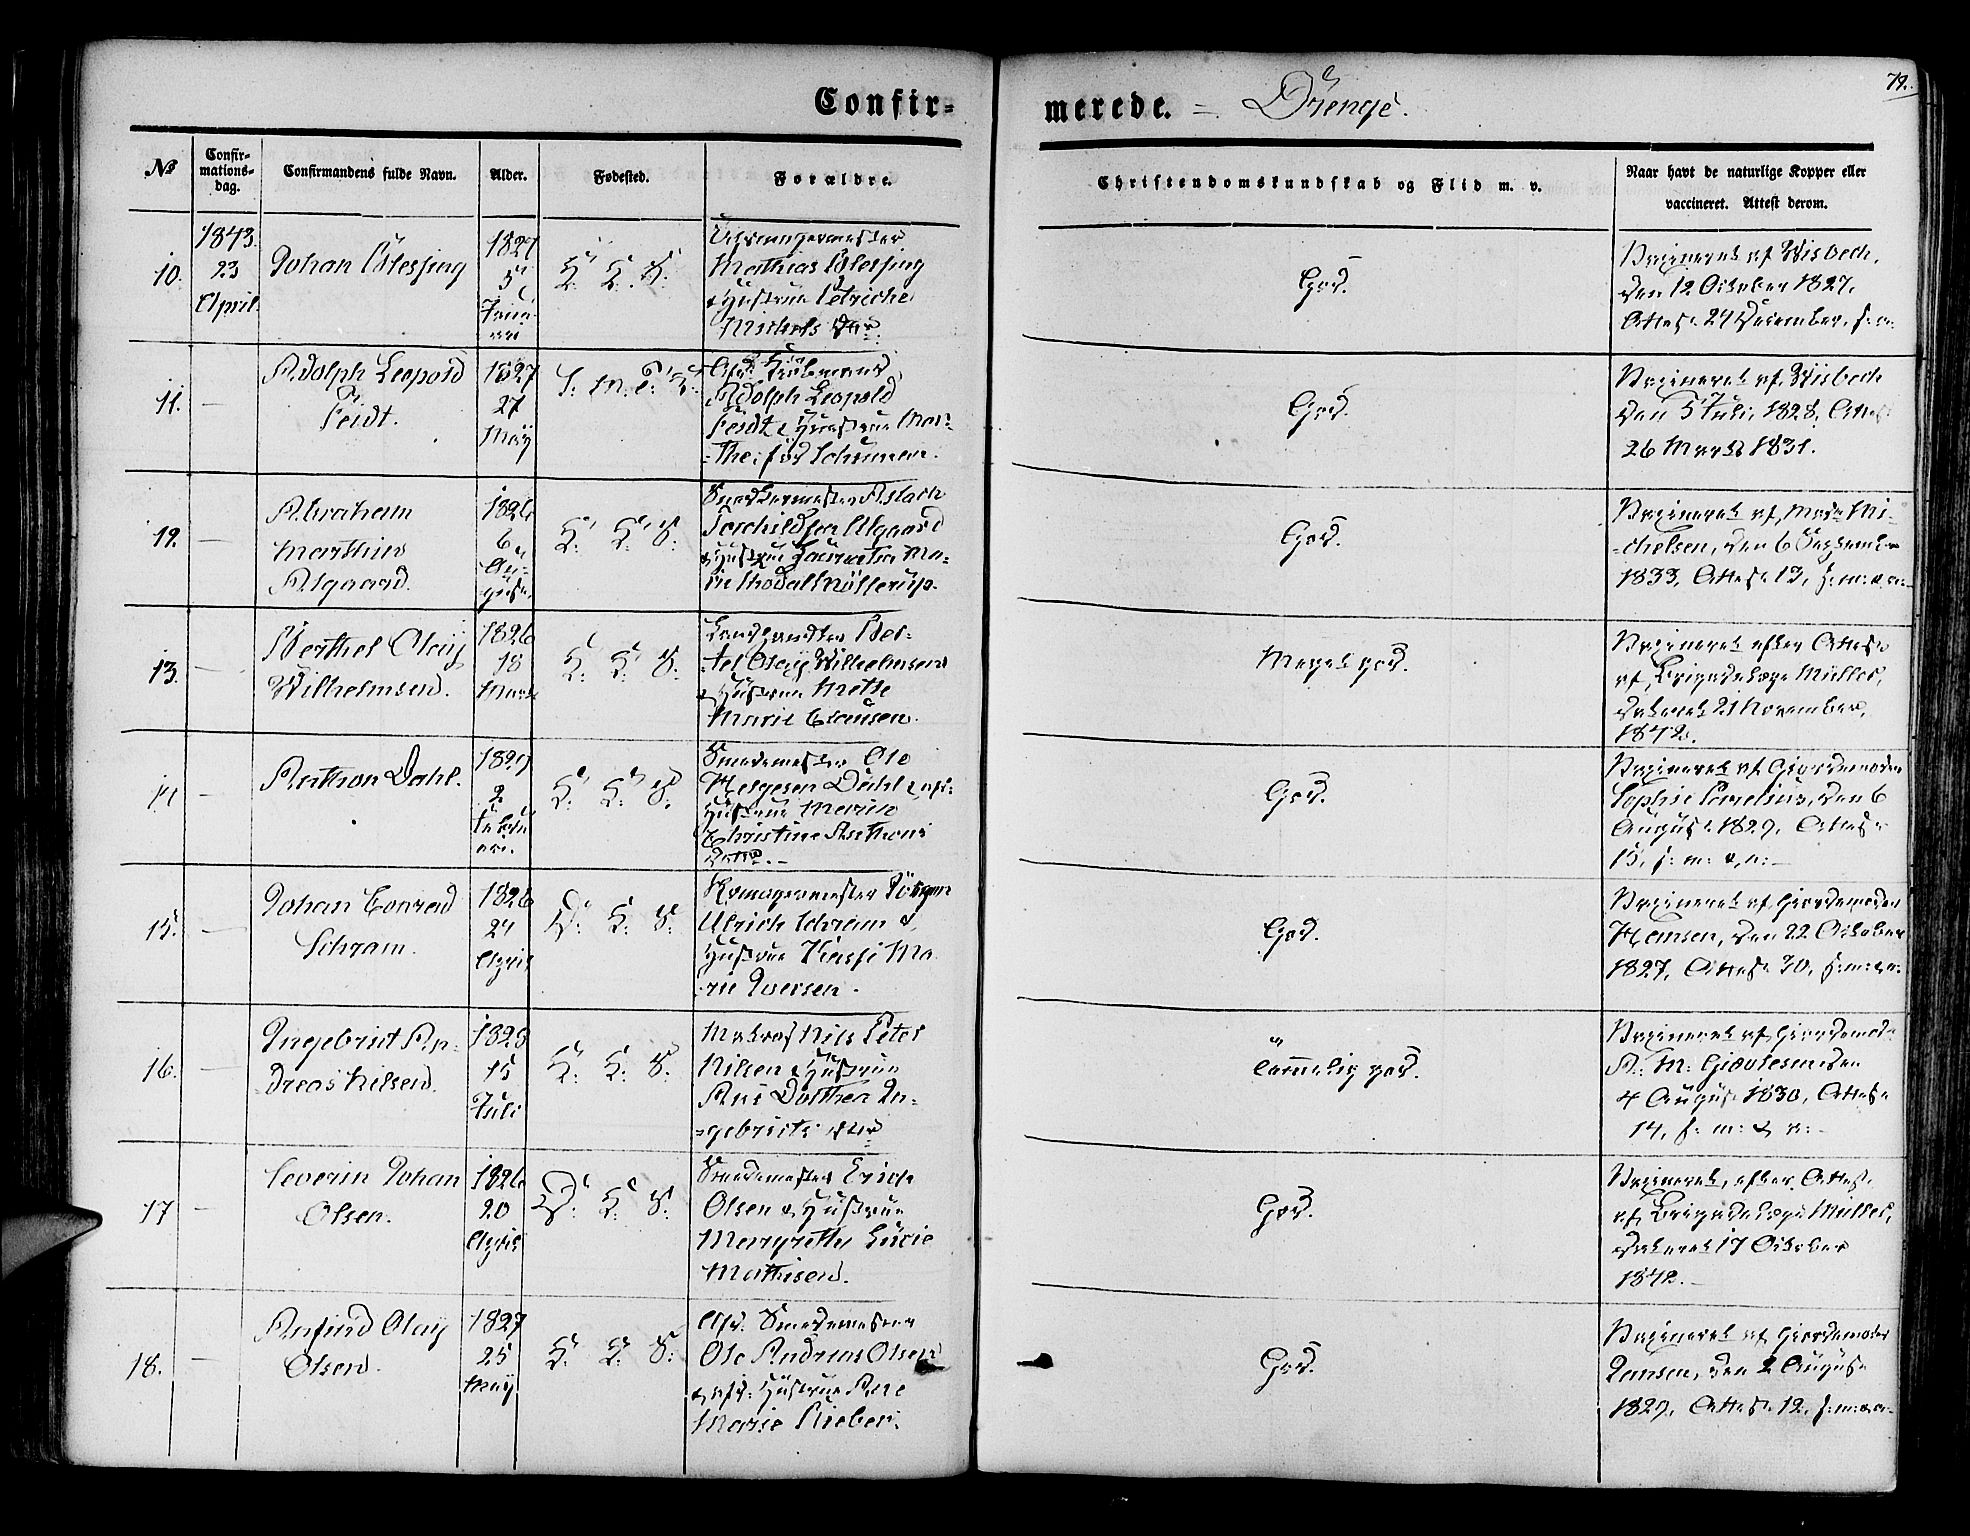 Confir-
merede. = Drenge.
79.
No
Confir-
mations-
dag.
Confirmandens fulde Navn.
Alder.
Fødested.
Forældre.
Christendomskundskab og Flid m. v.
Naar havt de naturlige Kopper eller
vaccineret. Attest derom.
10.
1843.
23
April.
Johan Blessing
1827
5
Mathias Blessing
& Hustrue
God.
Vaxineret af Wisbech,
den 12 October 1827.
Attest 24 December, s: a:
11.
Adolph Leopold
Feidt.
1827
27
May
Adolph Leopold
Feidt & Hustrue Mar-
-the: fød
God.
Vaxineret af Wisbech
den 5 Juli, 1828, Attest
26 Marts 1831.
12.
Abraham
Marthin
Algaard.
1826
6
Au-
gust.
K: K: S:
& Hustrue
God.
Vaxineret af Mi-
-chelsen, den 6 September
1833, Attest 13, s: m: & a:
13.
Berthel Olay
Wilhelmsen.
1826
18
Marts
K: K: S:
Ber-
tel Olay Wilhelmsen
& Hustrue Mette
Marie Clausen.
Meget god.
Vaxineret efter Attest
af Brigadelæge Müller,
dateret 21 November,
1842.
14
Anthon Dahl.
1827
2
Februari.
K: K: S:
Smedemester Ole
Helgesen Dahl & afd:
Hustrue
Christine Anthoni
Datter.
God.
Vaxineret af Giordemoder
Sophie den 6
August 1827, Attest
15, s: m: & a:
15.
Johan Conrad
Schram.
1826
24
April
D: K: S:
Jörgen
Ulrich Schram &
Hustrue Ma-
rie Iversen.
God.
Vaxineret af Giordemoder
Hansen, den 22 October
1827, Attest 30, s: m: & a:
16.
Ingebrict An-
dreas Nilsen.
1828
15
Juli
K: K: S:
Matros Nils Peter
Nilsen & Hustrue
Ane Dorthea In-
-gebricts dtr
Temmelig god.
Vaxineret af Giordemod:
A: M: den
4 August 1830, Attest
14, s: m: & a:
17
Severin Johan
Olsen.
1826
20
April
D: K: S:
Smedemester Erich
Olsen & Hustrue
Margrethe Lucie
Mathisen.
God.
Vaxineret, efter Attest
af Brigadelæge Müller,
dateret 17 October
1842.
18.
Anfind Olay
Olsen.
1827
25
May
K: K: S:
Afd: Smedemester
Ole Andreas Olsen
& afd: Hustrue Ane
Marie Rieber.
God.
Vaxineret af Giordemoder
Jansen, den 2 August
1827, Attest 12, s: m: & a: